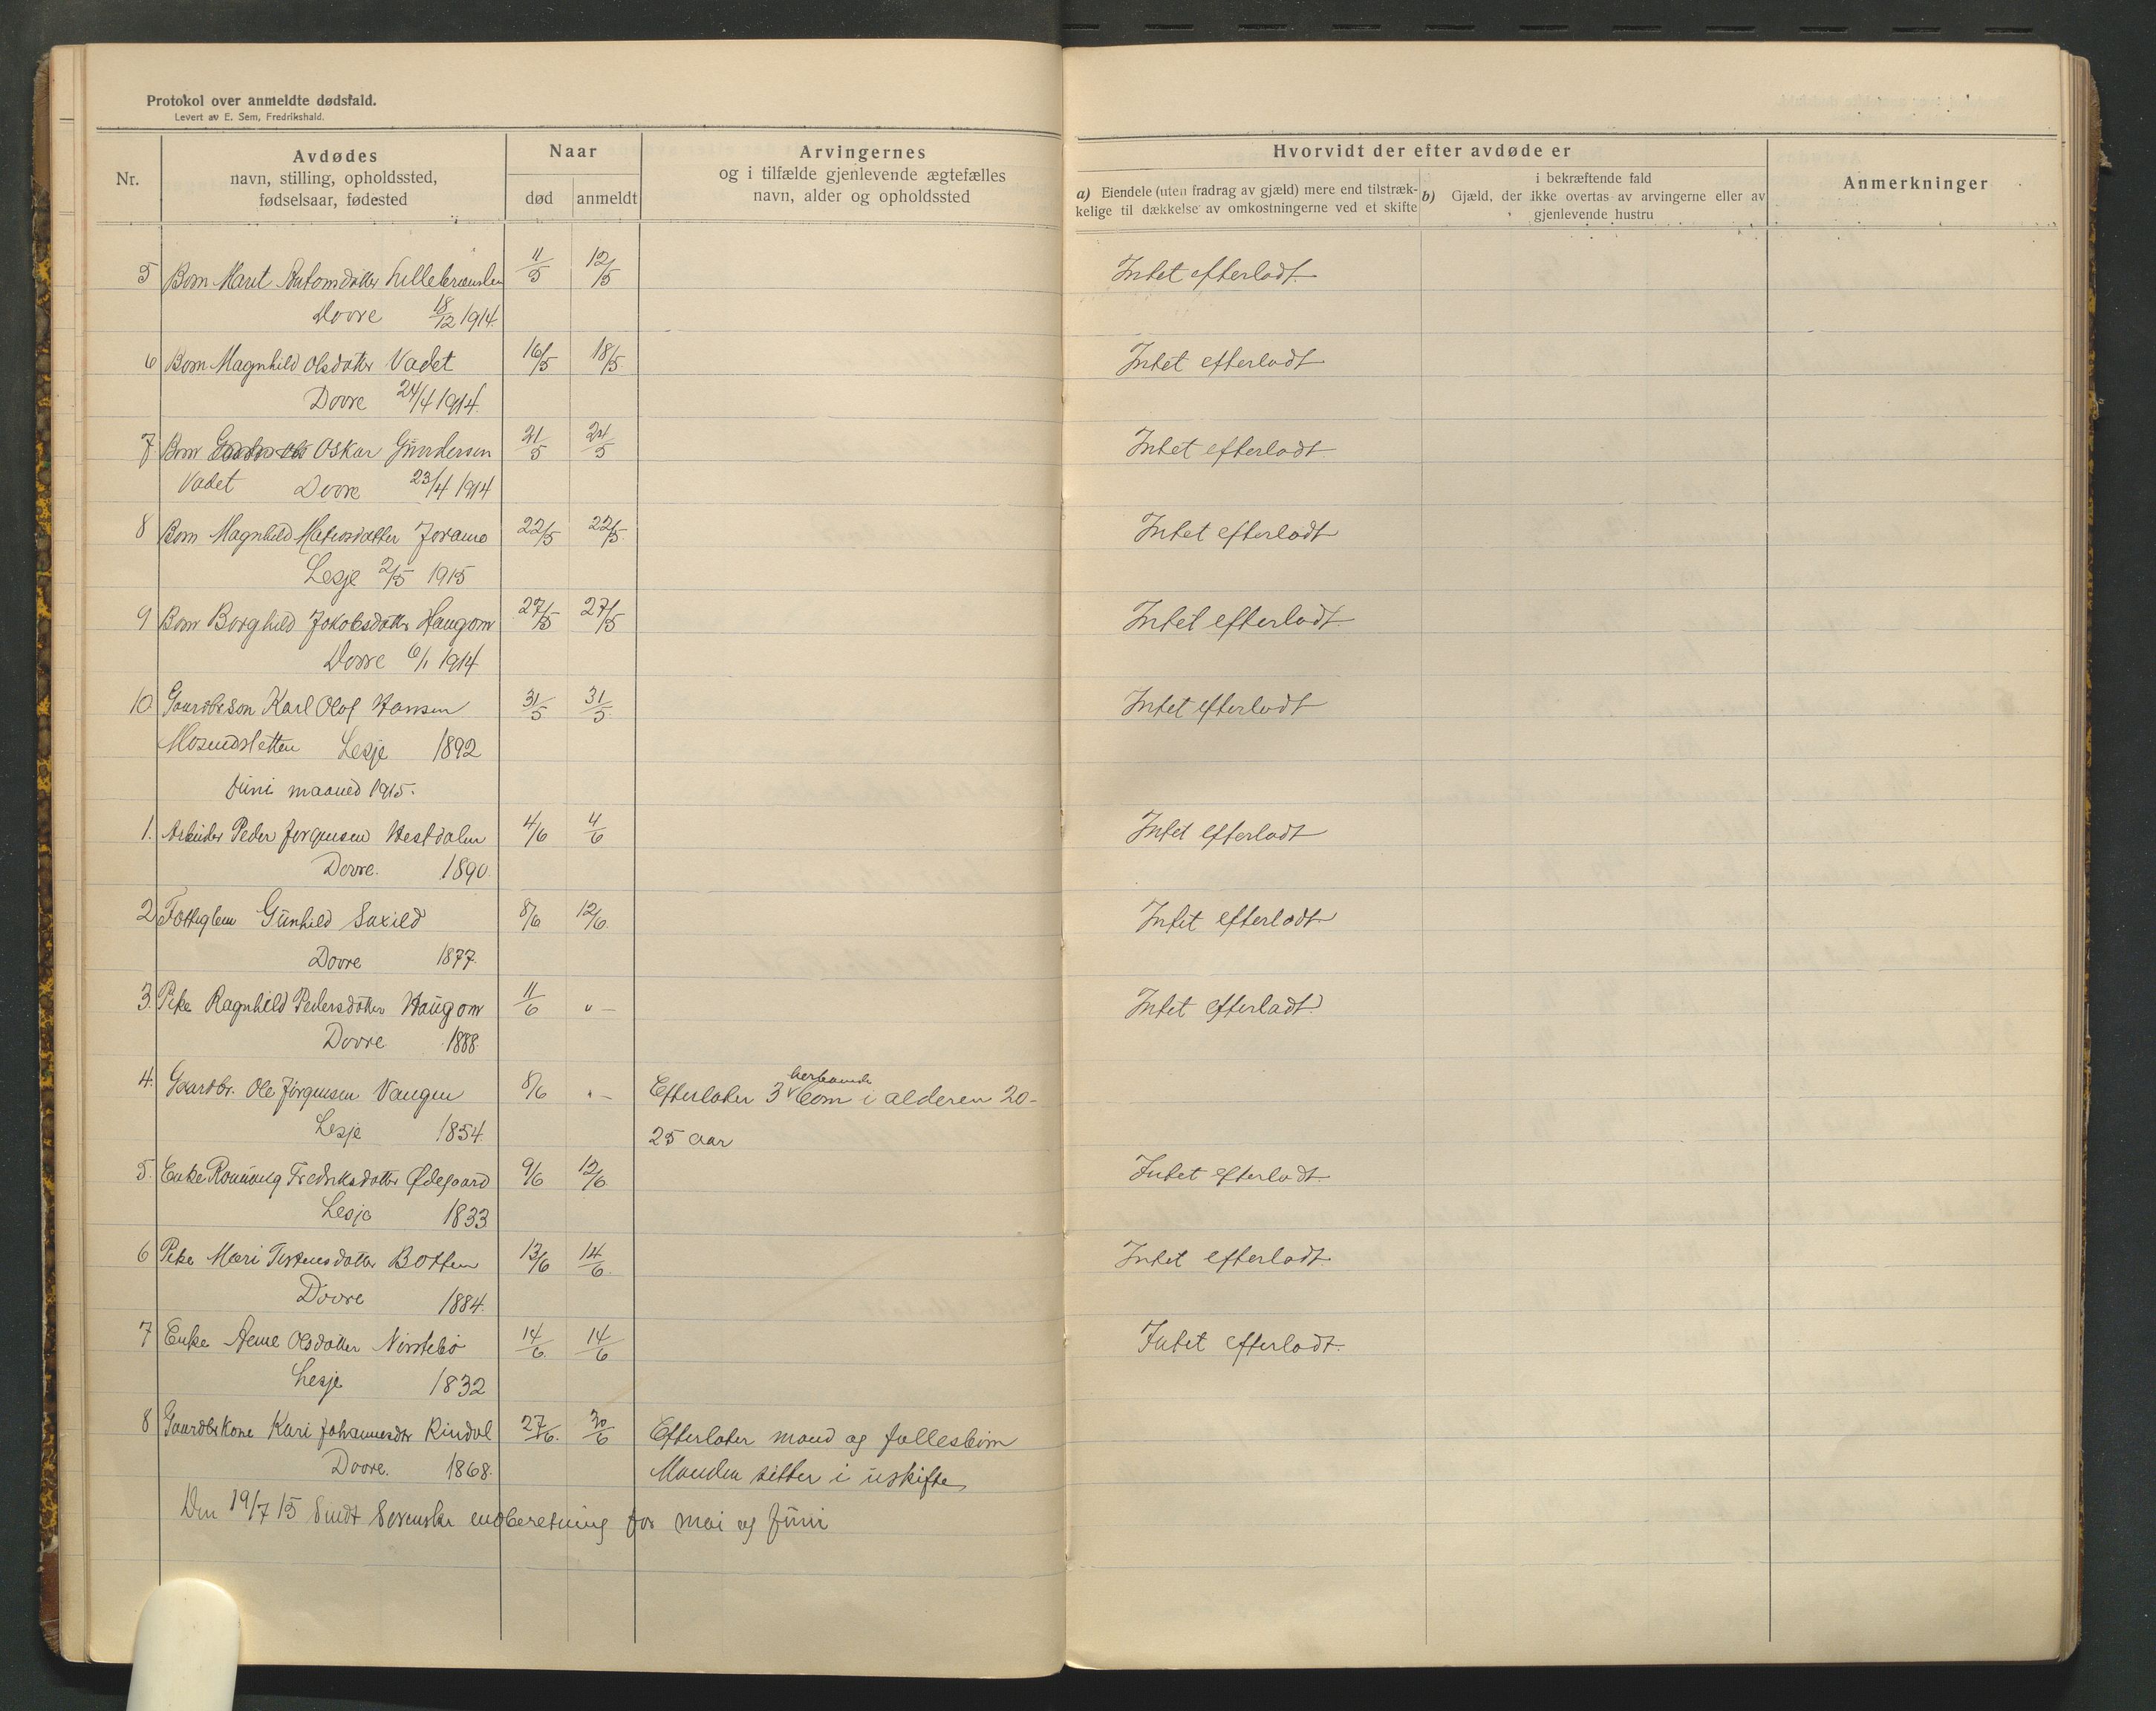 Protokol over anmeldte dødsfald.
Levert av E. Sem, Fredrikshald.
Nr.
Avdødes
navn, stilling, opholdssted,
fødselsaar, fødested
Naar
død
anmeldt
Arvingernes
og i tilfælde gjenlevende ægtefælles
navn, alder og opholdssted
Hvorvidt der efter avdøde er
a) Eiendele (uten fradrag av gjæld) mere end tilstræk-
kelige til dækkelse av omkostningerne ved et skifte
i bekræftende fald
b) Gjæld, der ikke overtas av arvingerne eller av
gjenlevende hustru
Anmerkninger
5 Barn Marit 11/5 12/5 Intet efterladt.
Dovre 18/12 1914.
6 Barn Magnhild Olsdatter Vadet 16/5 18/5 Intet efterladt
Dovre 24/4 1914.
7 Barn Oskar Gundersen 21/5 24/5 Intet efterladt
Vadet Dovre 23/4 1914
8 Barn Magnhild Joramo 22/5 22/5 Intet efterladt
Lesje 2/5 1915
9 Barn Borghild Jakobsdatter Haugom 27/5 27/5 Intet efterladt
Dovre 6/1 1914
10. Gaardbr.søn Karl Olof Hansen 31/5 31/5 Intet efterladt
Lesje 1892
Juni maaned 1915.
1. Arbeider Peder Jørgensen Vestdalen 4/6 4/6 Intet efterladt
Dovre. 1890.
2 Fattiglem Gunhild Saxild 8/6 12/6. Intet efterladt
Dovre 1877.
3. Pike Ragnhild Pedersdatter Haugom 11/6 " - Intet efterladt
Dovre 1888.
4. Gaardbr. Ole Jørgensen Vangen 8/6 " - Efterlater 3 børn i alderen 20-
Lesje 1854. 25 aar
5. Enke Rønnaug Fredriksdatter Ødegaard 9/6 12/6 Intet efterladt
Lesje 1833
6 Pike Mari Botten 13/6 14/6. Intet efterladt
Dovre 1884.
7 Enke Anne Olsdatter 14/6. 14/6 Intet efterladt.
Lesje 1832
8 Gaardbr.kone Kari Johannesdtr Rindal 27/6. 30/6 Efterlater mand og fællesbørn
Dovre. 1868. Manden sitter i uskifte
Den 19/7 15 Sendt Sorenskr indberetning for mai og juni